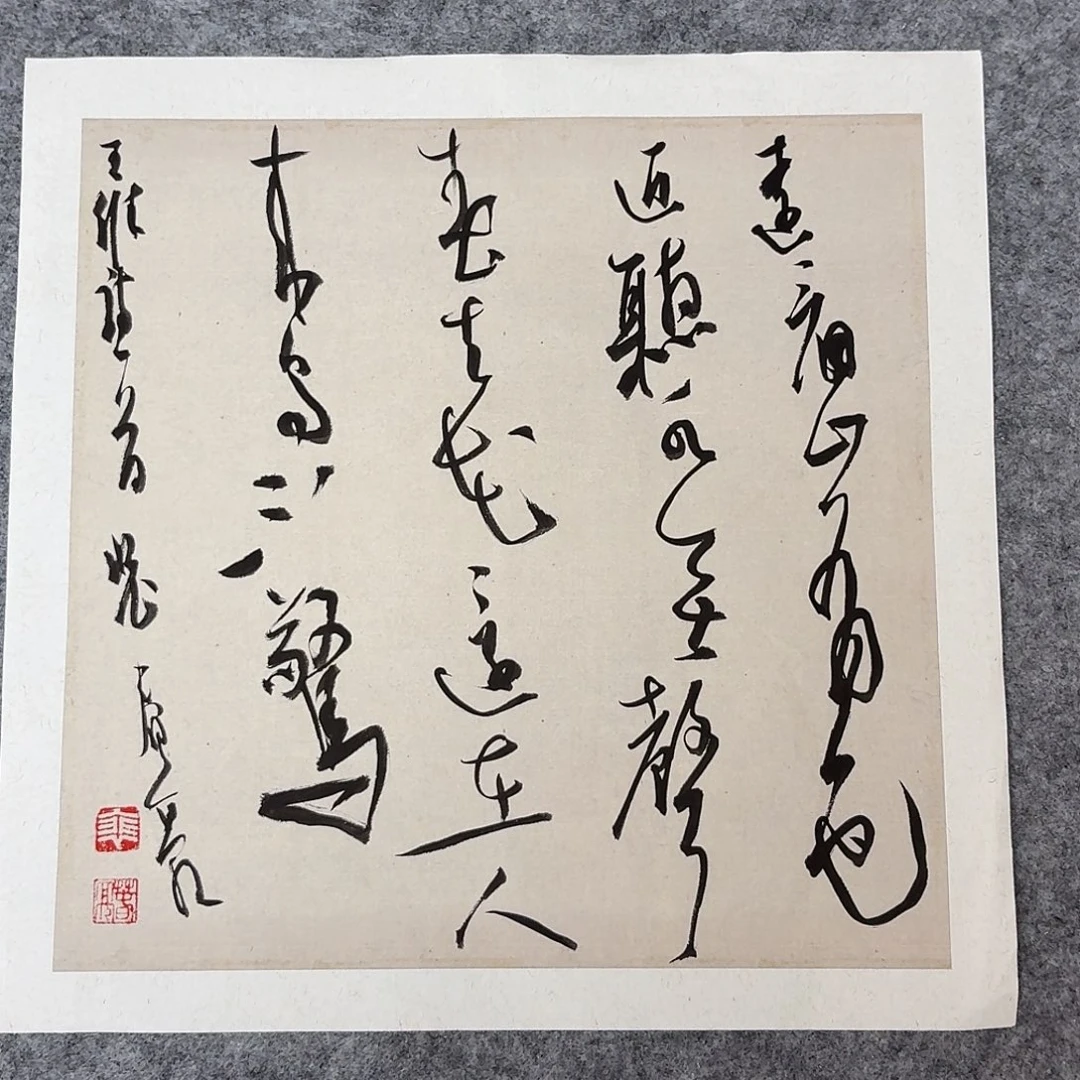 遠看山有色
近聽水無聲
春去花還在人
來鳥不驚
王維詩一首